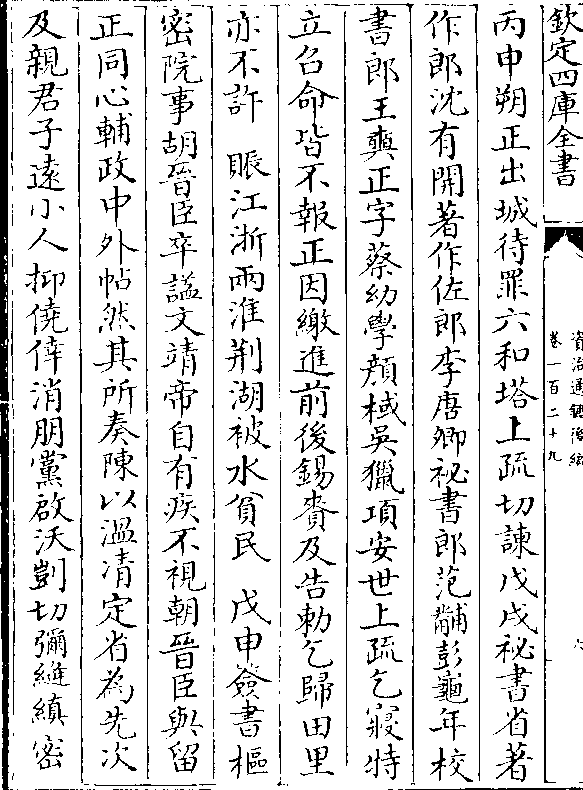 欽定四庫全書
資治通鑑後編
卷一百二十九
六
丙申朔正出城待罪六和塔上疏切諫戊戌祕書省著
作郎沈有開著作佐郎李唐卿祕書郎范黼彭龜年校
書郎王奭正字蔡幼學顔棫吳獵項安世上疏乞寢特
立召命皆不報正因繳進前後錫賚及告勅乞歸田里
亦不許　賑江浙兩淮荆湖被水貧民　戊申簽書樞
密院事胡晉臣卒諡文靖帝自有疾不視朝晉臣與留
正同心輔政中外帖然其所奏陳以温凊定省為先次
及親君子遠小人抑僥倖消朋黨啟沃剴切彌縫縝密